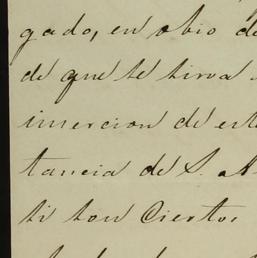 gado, en obio de
de que te sirva
insercion de est
tancia de S.
si son Ciertos